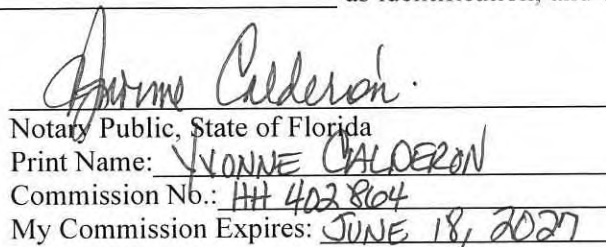 as identification, and
Yvonne Calderón.
Notary Public, State of Florida
Print Name: YVONNE CALDERON
Commission No.: HH 402864
My Commission Expires: JUNE 18, 2027